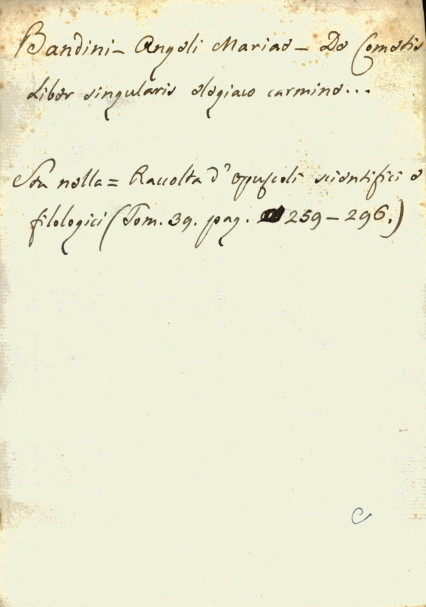 Bandini - Angeli Mariae - De Cometis
Liber singularis elegiaco carmine...
Sta nella = Raccolta d'opuscoli scientifici e
filologici (Tom. 39. pag. 259 - 296.)
C